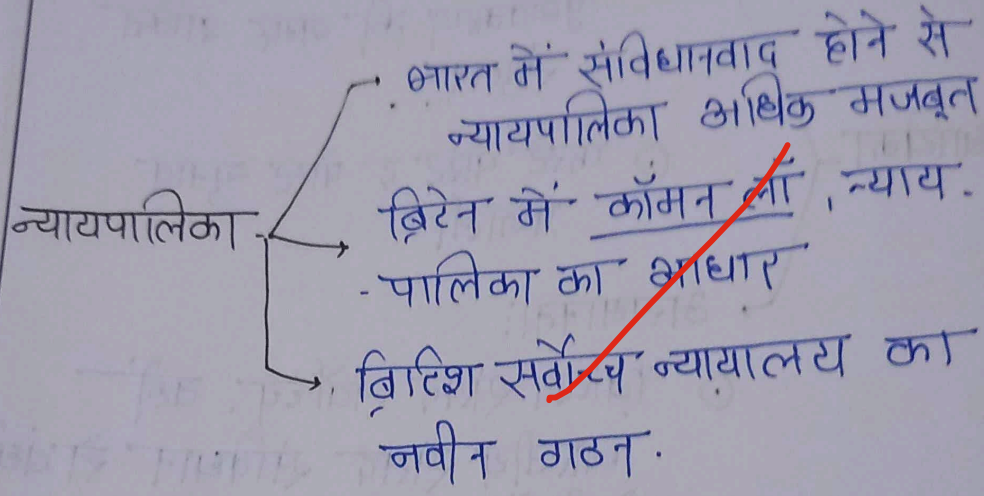 भारत में संविधानवाद होने से
न्यायपालिका अधिक मजबूत
न्यायपालिका
ब्रिटेन में कॉमन लॉ, न्याय-
-पालिका का आधार
ब्रिटिश सर्वोच्च न्यायालय का
नवीन गठन.